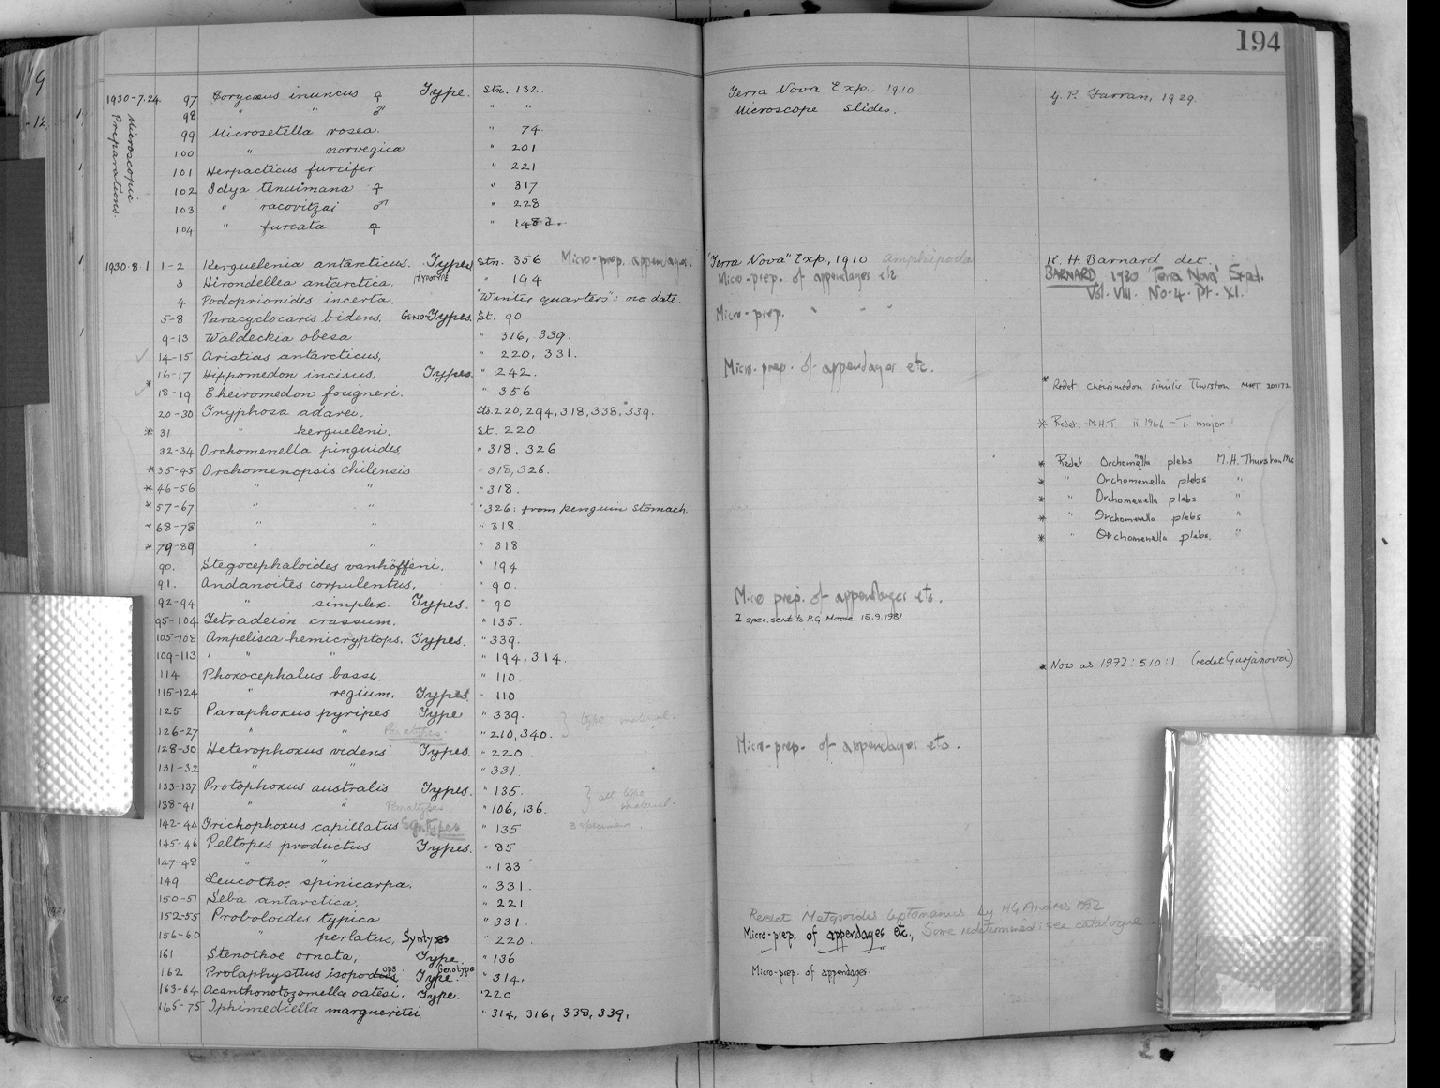 194
1930-7.24. 97 Corycaeus inuncus ♀ Type. Stn. 132. Terra Nova Exp. 1910 G. P. Farran, 1929.
Microscopic Preparations.
98 " " ♂ " " Microscope slides.
99 Microsetella rosea. " 74.
100 " norvegica " 201
101 Herpacticus furcifer " 221
102 Idya tenuimana ♀ " 317
103 " racovitzai ♂ " 228
104 " furcata ♀ "
1930.8.1 1-2 Kerguelenia antarctica. Types Stn. 356 Micro-prep. appendages. "Terra Nova" Exp, 1910 amphipoda K. H. Barnard det
3 Hirondellea antarctica. " 194 Micro-prep. of appendages etc BARNARD 1930 'Terra Nova' Exped.
4 Podoprionides incerta "Winter quarters": no date. Vol. VIII. No. 4. Pt. XI.
5-8 Paracyclocaris bidens. Geno-Types. St. 90 Micro-prep. " " "
9-13 Waldeckia obesa " 316, 339.
14-15 Aristias antarcticus, " 220, 331.
16-17 Hippomedon incisus. Types. " 242. Micro-prep. of appendages etc.
* 18-19 Cheiromedon fougneri. " 356 * Redet cheirimedon similis Thurston
20-30 Tryphosa adarei. Sts. 220, 294, 318, 338, 339.
* 31 " kergueleni. St. 220 * Redet. MHT ii 1966 - T. major
32-34 Orchomenella pinguides " 318. 326
* 35-45 Orchomenopsis chilensis " 318, 326. * Redet Orchomenella plebs M.H. Thurston
* 46-56 " " " 318. * " Orchomenella plebs "
* 57-67 " " " 326: from penguin stomach. * " Orchomenella plebs "
* 68-78 " " " 318 * Orchomenella plebs "
* 79-89 " " " 318 * " Orchomenella plebs. "
90. Stegocephaloides vanhöffeni. " 194
91. Andanoites corpulentus, " 90.
92-94 " simplex. Types. " 90 Micro prep. of appendages etc.
95-104 Tetradeion crassum. " 135. 2 spec. sent to P.G. Moore 15.9.1981
105-108 Ampelisca hemicryptops. Types. " 339.
109-113 " " " " 194. 314. * Now as 1972:510:1 (redet Gurjanova)
114 Phoxocephalus bassi " 110
115-124 " regium. Types " 110
125 Paraphoxus pyripes Type " 339. } type material.
126-27 " " Paratypes. " 210, 340.
128-30 Heterophoxus videns Types. " 220 Micro-prep. of appendages etc.
131-32 " " " 331.
133-137 Protophoxus australis Types. " 135. } all type material.
138-41 " " Paratypes " 106, 136.
142-44 Trichophoxus capillatus Syntypes " 135 3 specimens.
145-46 Peltopes productus Types. " 85
147-48 " " " 133
149 Leucothoe spinicarpa. " 331.
150-51 Seba antarctica. " 221
152-55 Proboloides typica " 331. Redet Metopoides leptomanus by
156-60 " perlatus, Syntypes " 220. Micro-prep. of appendages etc, Some redetermined: see catalogue
161 Stenothoe ornata, Type. " 136
162 Prolaphystius isopodops Type. Genotype " 314. Micro-prep. of appendages.
163-64 Acanthonotozomella oatesi. Type. " 220
165-75 Iphimediella margueritei " 314, 316, 338, 339,